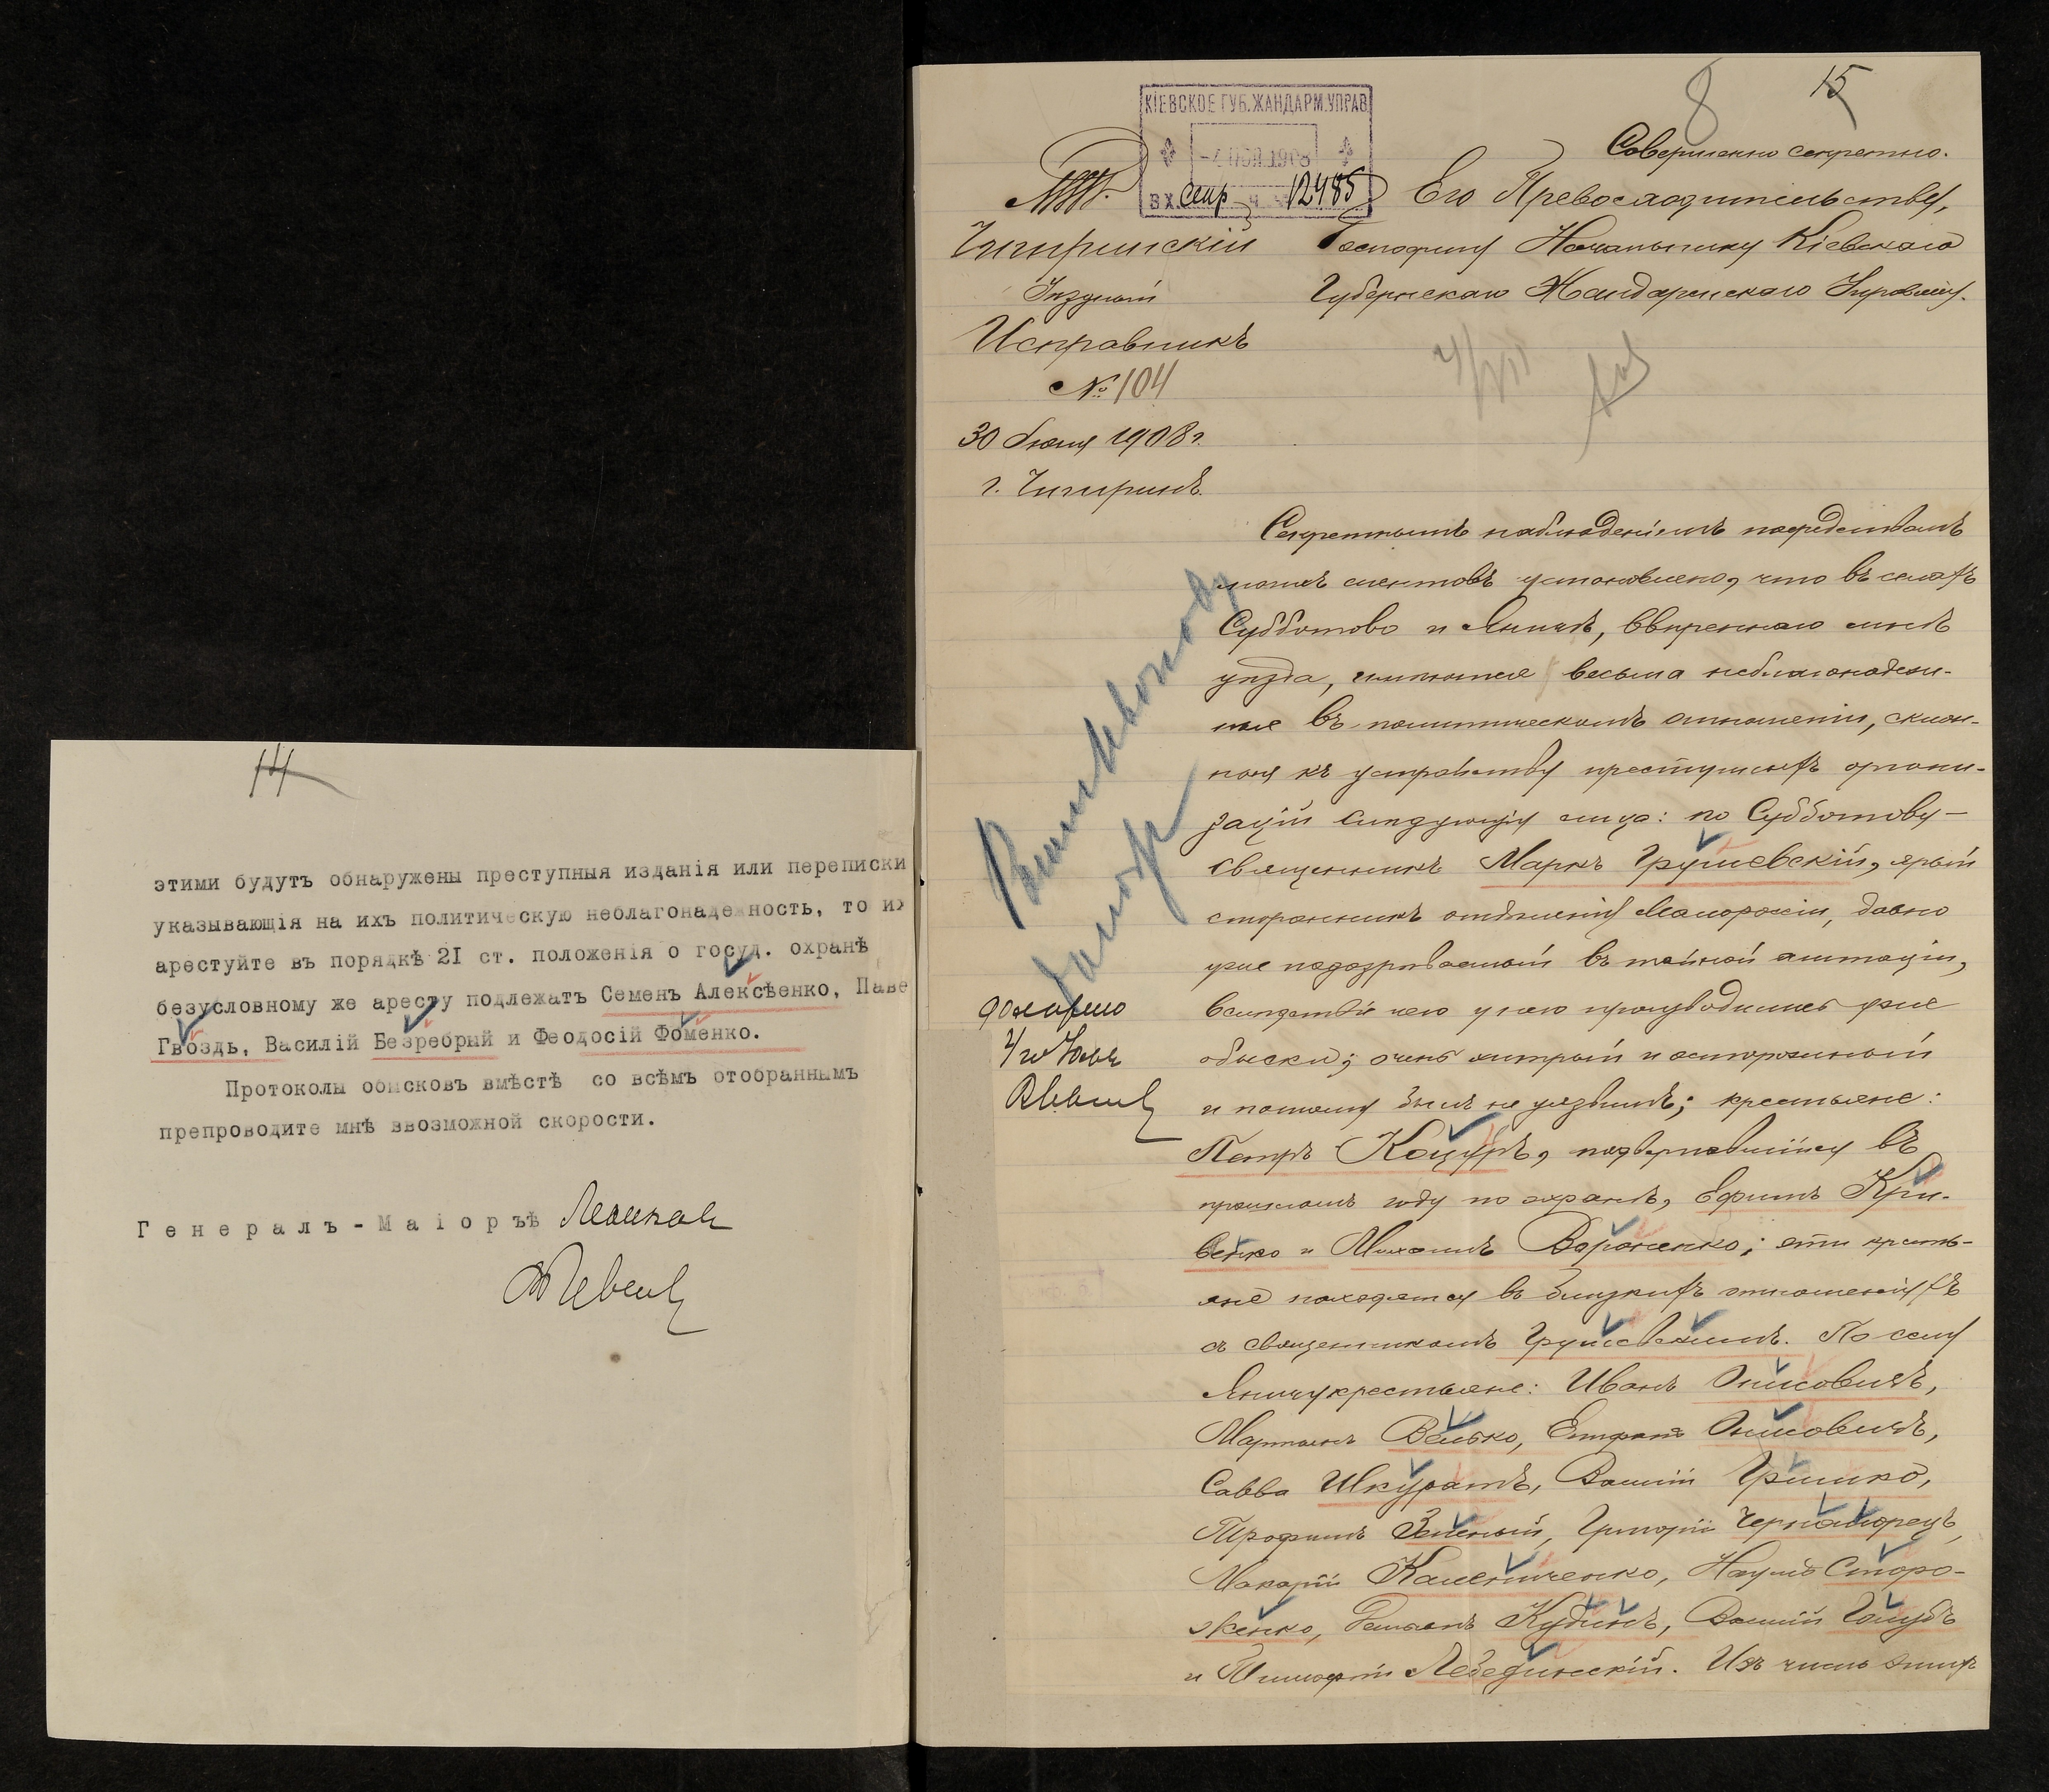 14
этими будутъ обнаружены преступныя изданія или переписки
указывающія на ихъ политическую неблагонадежность, то их
арестуйте въ порядкѣ 21 ст. положенія о госуд. охранѣ
безусловному же аресту подлежатъ Семенъ Алексѣенко, Паве
Гвоздь, Василій Безребрый и Феодосій Фоменко.
Протоколы обысковъ вмѣстѣ со всѣмъ отобраннымъ
препроводите мнѣ ввозможной скорости.
Генералъ-Маіоръ Леонтьев
8 15
КІЕВСКОЕ ГУБ. ЖАНДАРМ. УПРАВ
-4 ІЮЛ 1908
ВХ. секр 12485
Совершенно секретно.
Его Превосходительству,
Господину Начальнику Кіевскаго
Губернскаго Жандармскаго Управленія.
М.В.Д.
Чигиринскій
Уѣздный
Исправникъ
№ 104
30 Іюня 1908 г.
г. Чигиринъ.
4/VII
Секретнымъ наблюденіемъ посредствомъ
моихъ агентовъ установлено, что въ селахъ
Субботово и Янычѣ, ввѣреннаго мнѣ
уѣзда, имѣются весьма неблагонадеж-
ные въ политическомъ отношеніи, склон-
ныя къ устройству преступныхъ органи-
зацій слѣдующія лица: по Субботову —
священникъ Маркъ Грушевскій, ярый
сторонникъ отдѣленія Малороссіи, давно
уже подозрѣваемый въ тайной агитаціи,
вслѣдствіе чего у него производились уже
обыски; очень хитрый и осторожный
и потому былъ не уязвимъ; крестьяне:
Петръ Коцуръ, подвергавшійся въ
прошломъ году по охранѣ, Ефимъ Кри-
венко и Михаилъ Вороненко; эти кресть-
яне находятся въ близкихъ отношеніяхъ
съ священникомъ Грушевскимъ. По селу
Янычу крестьяне: Иванъ Онисовичъ,
Мартынъ Велько, Епифанъ Онисовичъ,
Савва Шкуратъ, Василій Гришко,
Трофимъ Зеленый, Григорій Черноморецъ,
Макарій Калениченко, Наумъ Сторо-
женко, Демьянъ Кудинъ, Василій Голубъ
и Тимофей Лебединскій. Изъ числа этихъ